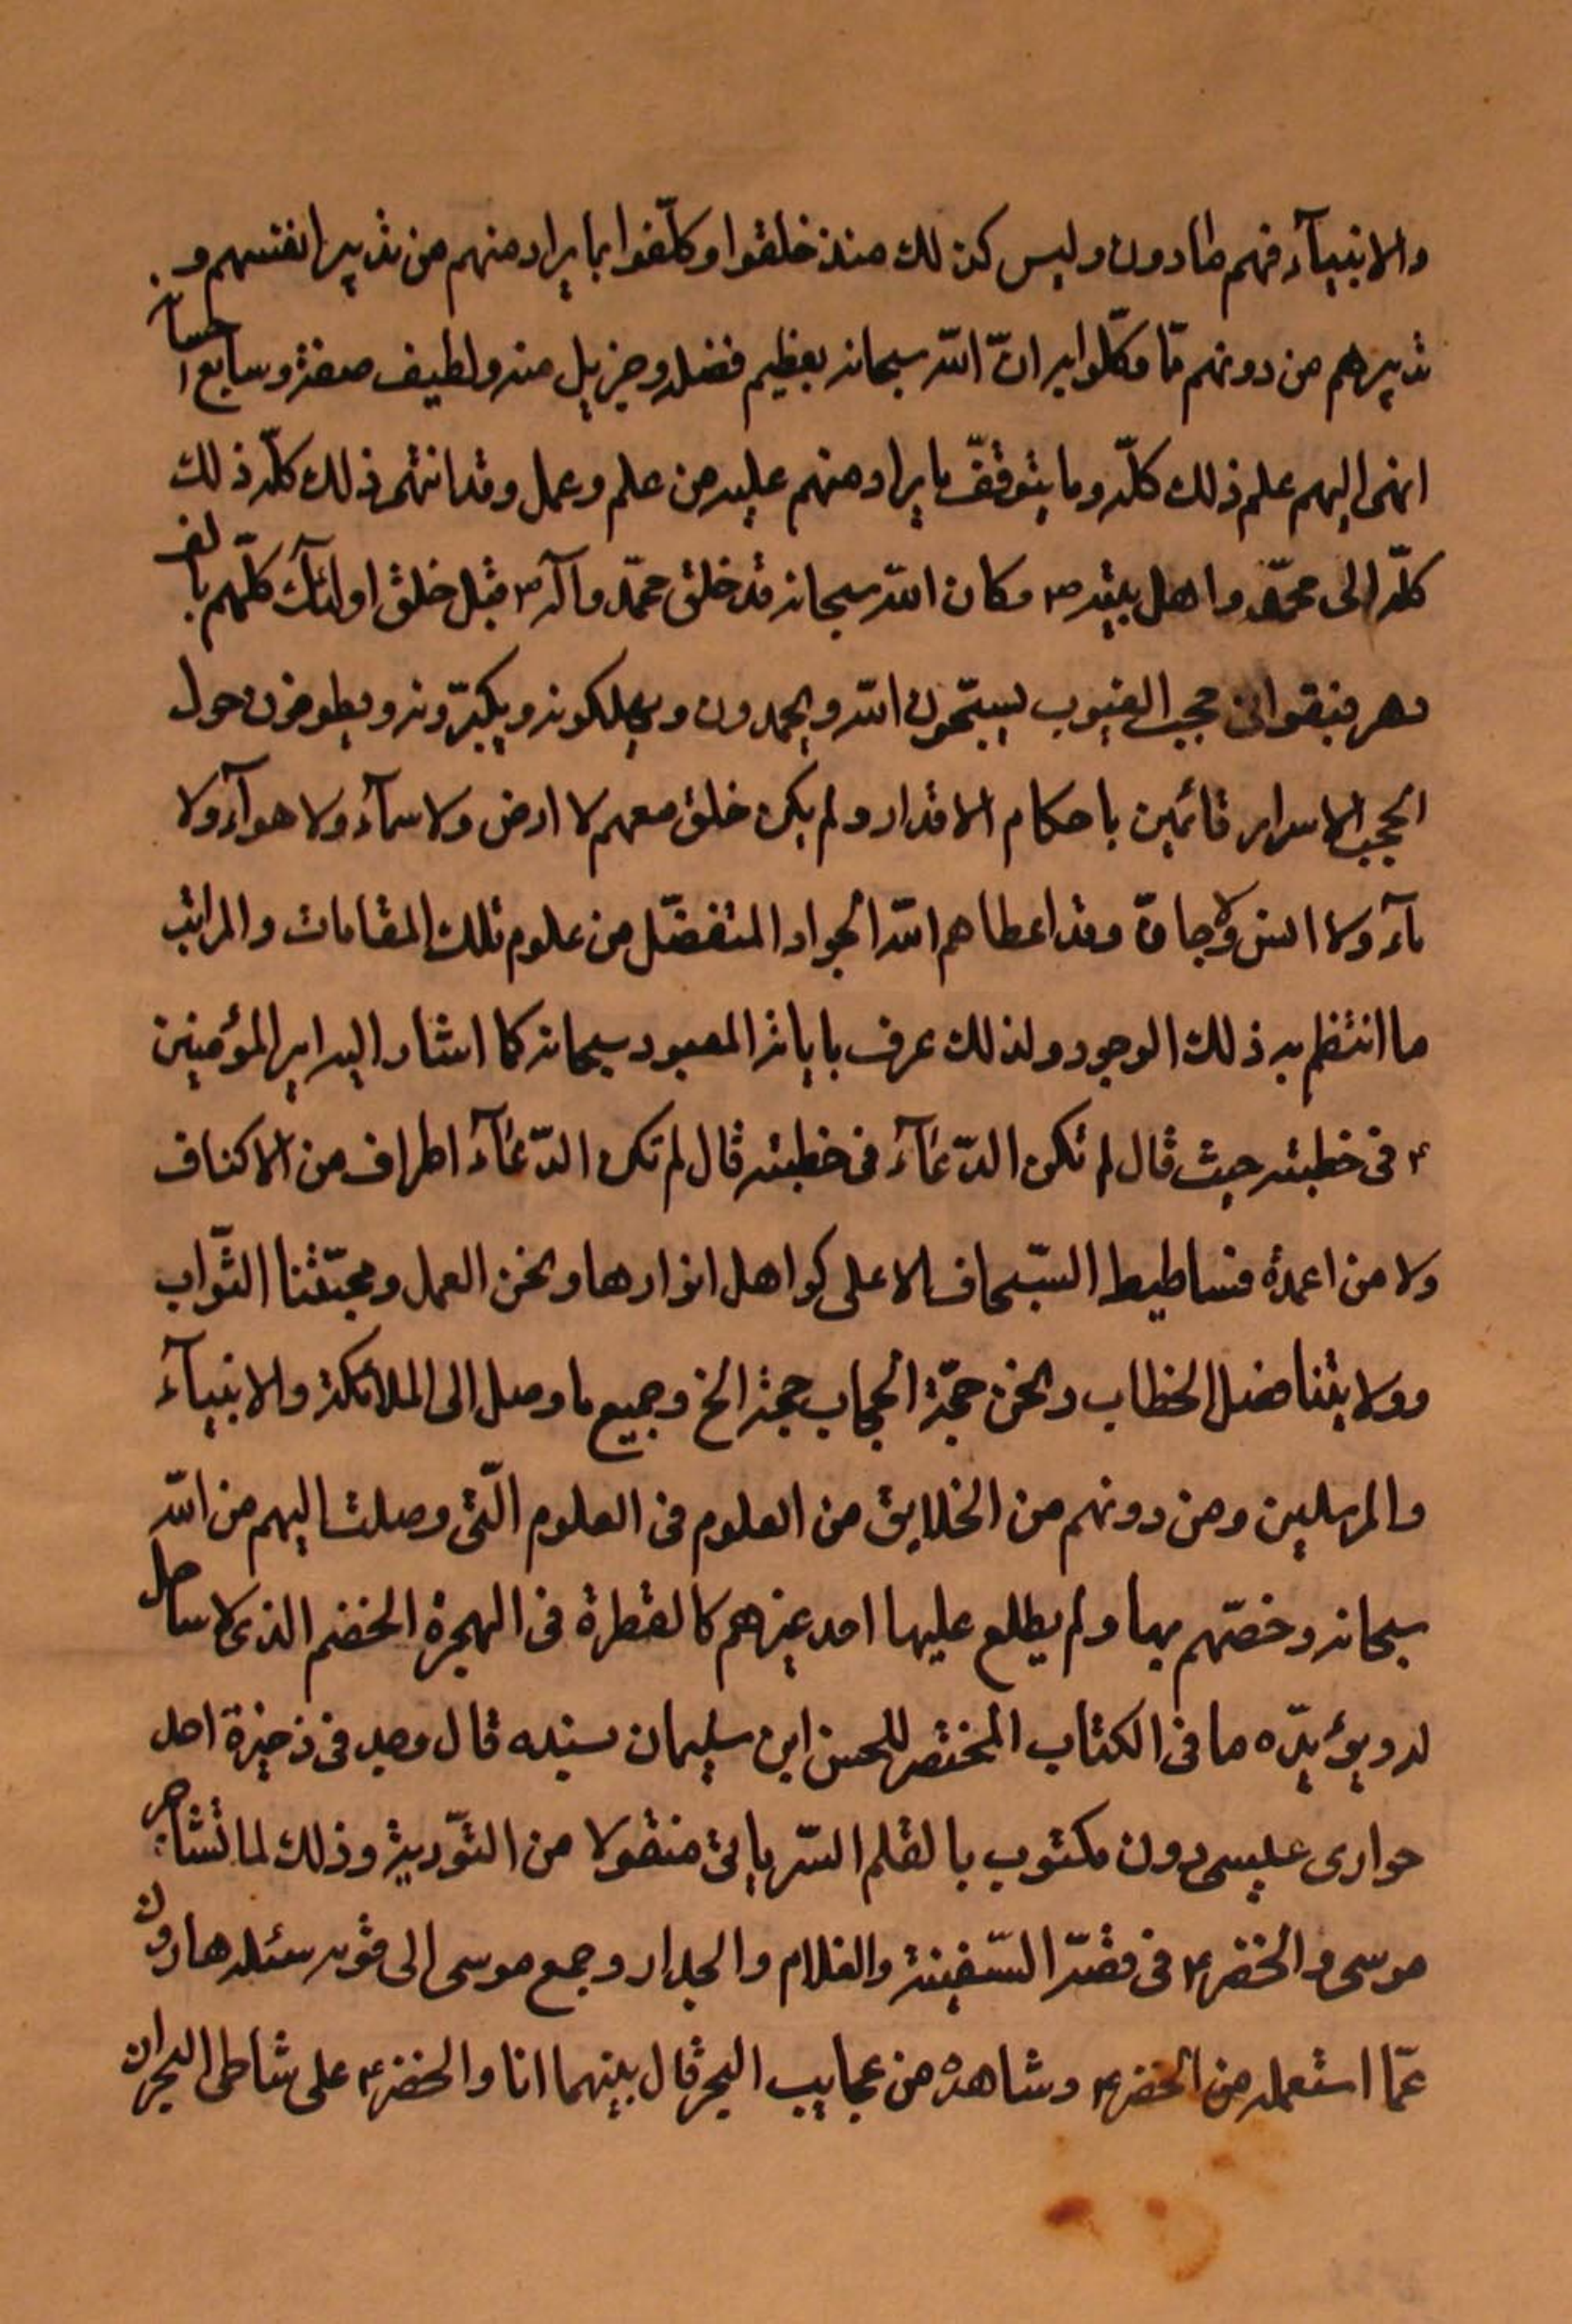 والانبيآء فهم طادون وليس كذلك منذ خلقوا وكلّفوا بما يراد منهم من تدبير انفسهم و
تدبيرهم من دونهم ممّا وكّلوا به انّ الله سبحانه بعظيم فضله وجزيل منه ولطيف صنعه وسابغ احسانه
انهى اليهم علم ذلك كلّه وما يتوقّف ما يراد منهم عليه من علم وعمل وقد انتهى ذلك كلّه ذلك
كلّه الى محمّد واهل بيته ص وكان الله سبحانه قد خلق محمّد وآله ص قبل خلق اولئك كلّهم بالف
دهر فبقوا فى حجب الغيوب يسبّحون الله ويحمدون ويهللونه ويكبّرونه ويطوفون حول
الحجب الاسرار قائمين باحكام الاقدار ولم يكن خلق معهم لا ارض ولا سمآء ولا هوآء ولا
مآء ولا انس ولا جانّ وقد اعطاهم الله الجواد المتفضّل من علوم تلك المقامات والمراتب
ما انتظم به ذلك الوجود ولذلك عرف باياته المعبود سبحانه كما اشار اليه امير المؤمنين
ع فى خطبته حيث قال لم تكن الدّعمآء فى خطبته قال لم تكن الدّعمآء اطراف من الاكناف
ولا من اعمدة فساطيط السّجاف الا على كواهل انوارها ونحن العمل ومحبّتنا الثّواب
وولايتنا فضل الخطاب ونحن حجّة الحجاب حجة الخ وجميع ما وصل الى الملائكة والانبيآء
والمرسلين ومن دونهم من الخلايق من العلوم فى العلوم الّتى وصلت اليهم من الله
سبحانه وخصّهم بها ولم يطلع عليها احد غيرهم كالقطرة فى البحرة الخضم الذى لا ساحل
له ويؤيّده ما فى الكتاب المختصر للحسن ابن سليمان بسنده قال وجد فى ذخيرة احد
حوارى عيسى دون مكتوب بالقلم السّريانى منقولا من التّورية وذلك لما تشاجر
موسى والخضر ع فى قصّة السّفينة والغلام والجدار وجمع موسى الى قومه سئله هارون
عمّا استعمله من الخضر ع وشاهده من عجايب البحر قال بينهما انا والخضر ع على شاطى البحر ان